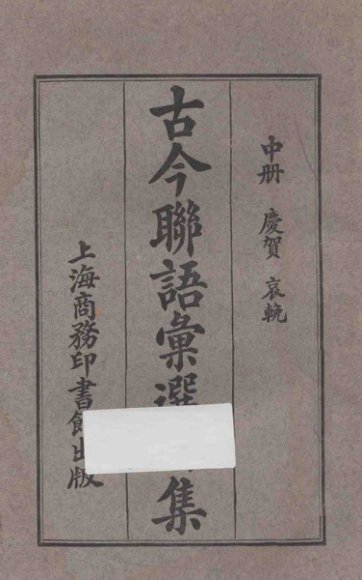 中册 慶賀 哀輓
古今聯語彙選集
上海商務印書館出版